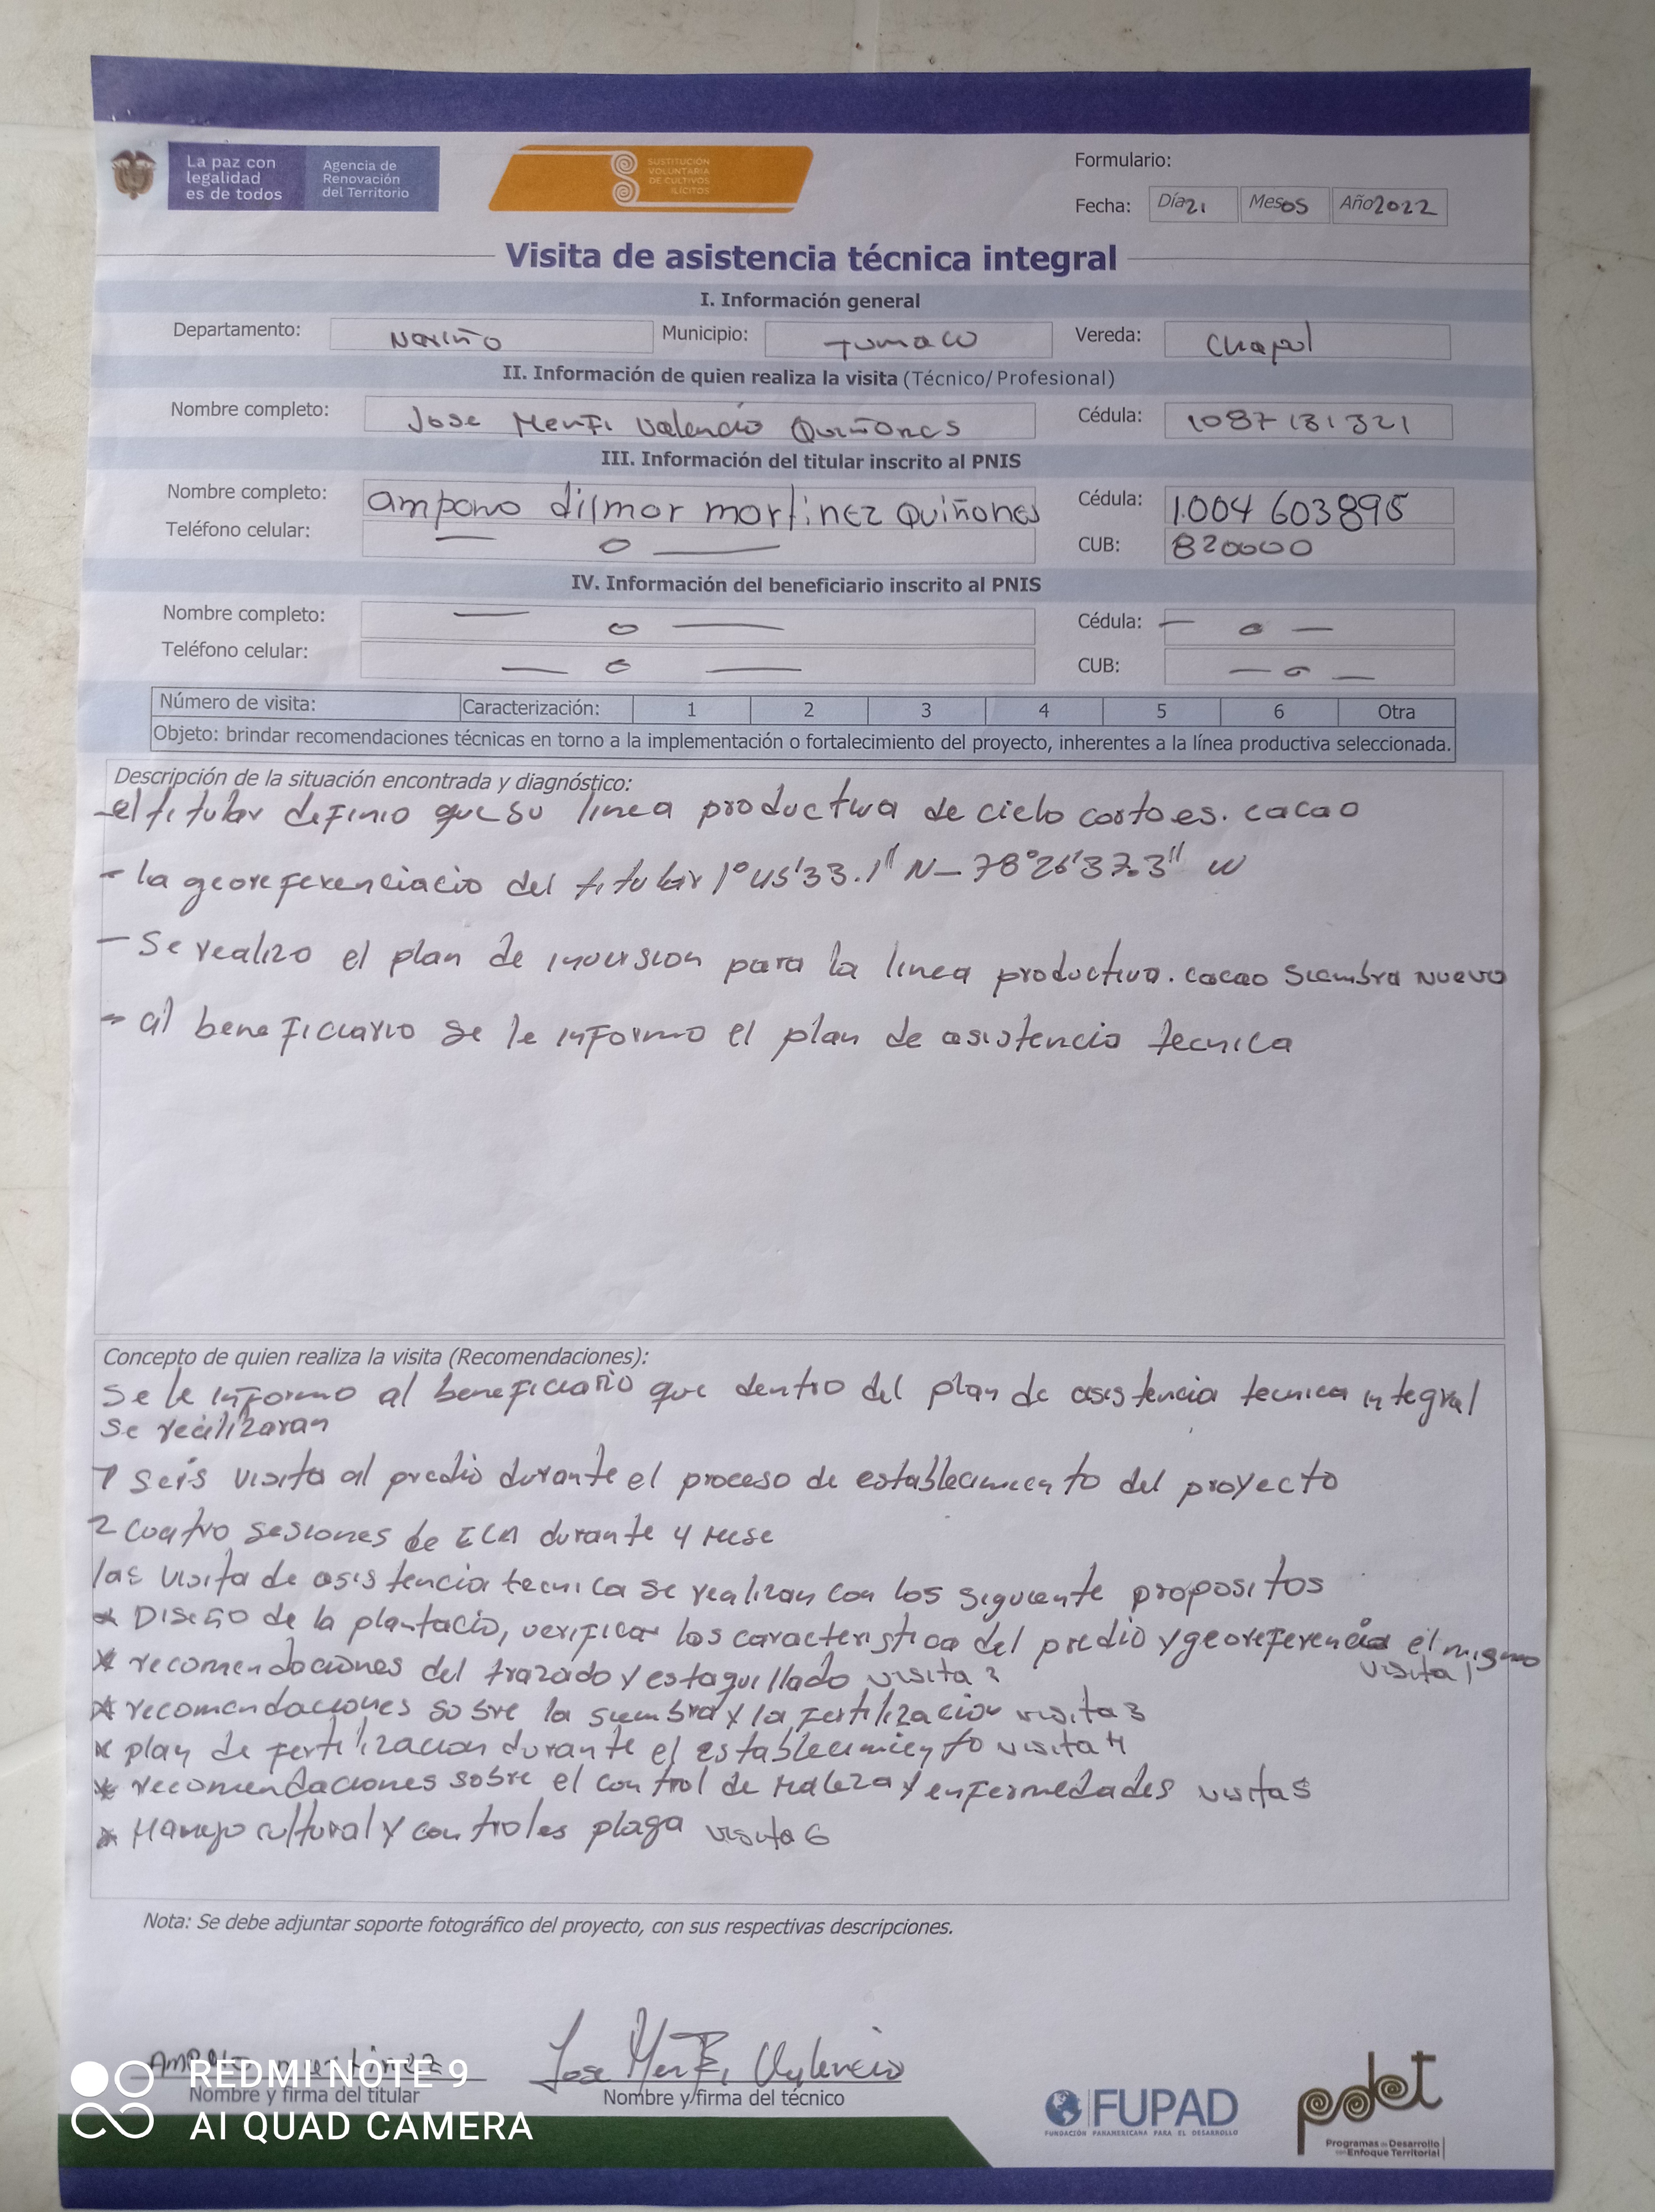 La paz con
legalidad
es de todos
Agencia de
Renovación
del Territorio
SUSTITUCIÓN
VOLUNTARIA
DE CULTIVOS
ILÍCITOS
Formulario:
Fecha: Día 21 Mes 05 Año 2022
Visita de asistencia técnica integral
I. Información general
Departamento: Nariño Municipio: Tumaco Vereda: Chapul
II. Información de quien realiza la visita (Técnico/Profesional)
Nombre completo: Jose Menfi Valencia Quiñones Cédula: 1087131321
III. Información del titular inscrito al PNIS
Nombre completo: dilmar martinez Quiñones Cédula: 1.004 603895
Teléfono celular: — 0 — CUB: 820000
IV. Información del beneficiario inscrito al PNIS
Nombre completo: — 0 — Cédula: — 0 —
Teléfono celular: — 0 — CUB: — 0 —
Número de visita: Caracterización: 1 2 3 4 5 6 Otra
Objeto: brindar recomendaciones técnicas en torno a la implementación o fortalecimiento del proyecto, inherentes a la línea productiva seleccionada.
Descripción de la situación encontrada y diagnóstico:
- el titular definio que su linea productiva de ciclo corto es. cacao
- la georeferenciacio del titular 1° 45'33.1" N - 78°26'37.3" W
- Se realizo el plan de inversion para la linea productiva. cacao siembra nuevo
- al beneficiario se le informo el plan de asistencia tecnica
Concepto de quien realiza la visita (Recomendaciones):
Se le informo al beneficiario que dentro del plan de asistencia tecnica integral
se realizaran
1 seis visita al predio durante el proceso de establecimiento del proyecto
2 cuatro sesiones de ECA durante 4 mese
las visita de asistencia tecnica se realizan con los siguiente propositos
* Diseño de la plantacio, verificar las caracteristica del predio y georeferencia el mismo
visita 1
* recomendaciones del trazado y estaquillado visita 2
* recomendaciones sobre la siembra y la fertilizacion visita 3
* plan de fertilizacion durante el establecimiento visita 4
* recomendaciones sobre el control de maleza y enfermedades visita 5
* Manejo cultural y controles plaga visita 6
Nota: Se debe adjuntar soporte fotográfico del proyecto, con sus respectivas descripciones.
martinez
Jose Menfi Valencia
Nombre y firma del titular
Nombre y firma del técnico
REDMI NOTE 9
AI QUAD CAMERA
FUPAD
FUNDACIÓN PANAMERICANA PARA EL DESARROLLO
pdet
Programas de Desarrollo
con Enfoque Territorial